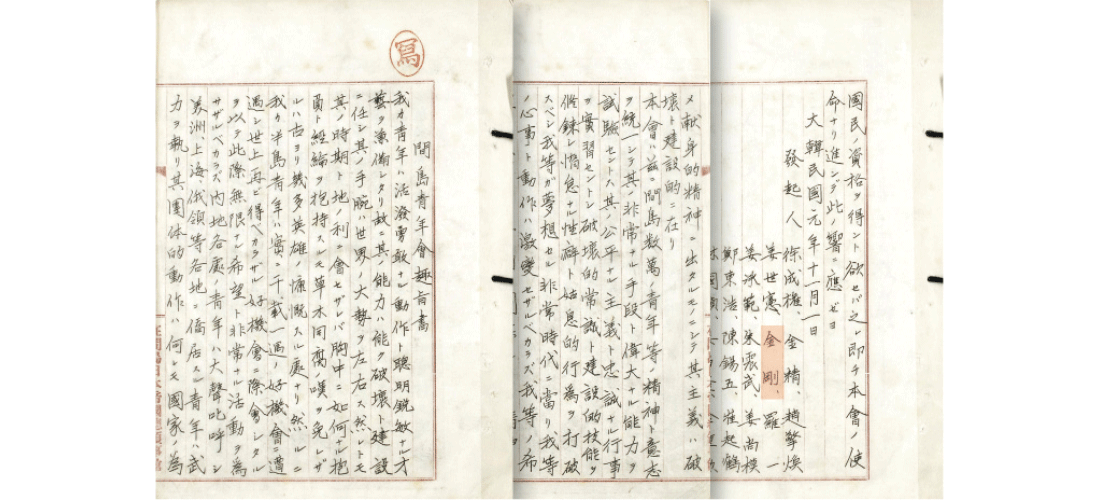 寫
間島青年會趣旨書
我カ青年ハ活潑勇敢ナル動作ト聰明銳敏ナル才
藝ヲ兼備シタリ故ニ其ノ能力ハ能ク破壞ト建設
ニ任シ其ノ手腕ハ世界ノ大勢ヲ左右ス然レトモ
其ノ時期ト地ノ利ニ會セザレバ胸中ニ如何ナル抱
負ト經綸ヲ抱持スルモ草木同腐ノ嘆ヲ免レザ
ルハ古ヨリ幾多英雄ノ慷慨スル處ナリ然ルニ
我カ半島青年ハ實ニ千載一遇ノ好機會ニ遭
遇シ世上再ビ得ベカラザル好機會ニ際會シタル
ヲ以テ此際無限ナル希望ト非常ナル活動ヲ為
サザルベカラズ內地各處ノ青年ハ大聲叱呼シ
美洲、上海、俄領等各地ニ僑居スル青年ハ武
力ヲ執リ其ノ團体的動作ハ何レモ國家ノ為
メ献身的精神ニ出タルモノニシテ其主義ハ破
壞ト建設的ニ在リ
本會ハ茲ニ間島数萬ノ青年等ノ精神ト意志
ヲ統一シテ其ノ非常ナル手段ト偉大ナル能力ヲ
試驗セントス其ノ公平ナル主義ト忠誠ナル行事
ヲ實習セントシ破壞的常識ト建設的技能ヲ
修鍊シ惰怠ナル性癖ト姑息的行為ヲ打破
スベシ我等ガ夢想セル非常時代ニ當リ我等
ノ心事ト動作ハ激變セザルベカラズ我等ノ希
國民資格ヲ得ント欲セバ之レ即チ本會ノ使
命ナリ進ンデ此ノ響ニ應ゼヨ
大韓民國元年十一月一日
發起人 徐成權、金精、趙擎煥
姜世憲、金剛、羅一
姜承範、朱震武、姜尚模
鄭東浩、陳錫五、崔起鶴